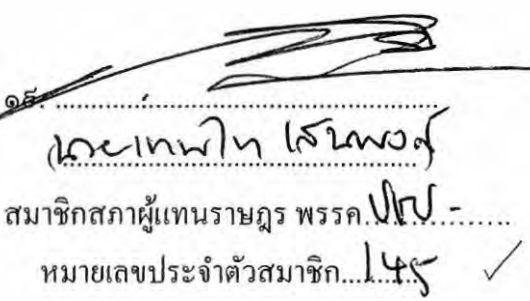 ๑๕. ........................................
(นายเทพไท เสนพงศ์)
สมาชิกสภาผู้แทนราษฎร พรรค ปชป.
หมายเลขประจำตัวสมาชิก....145